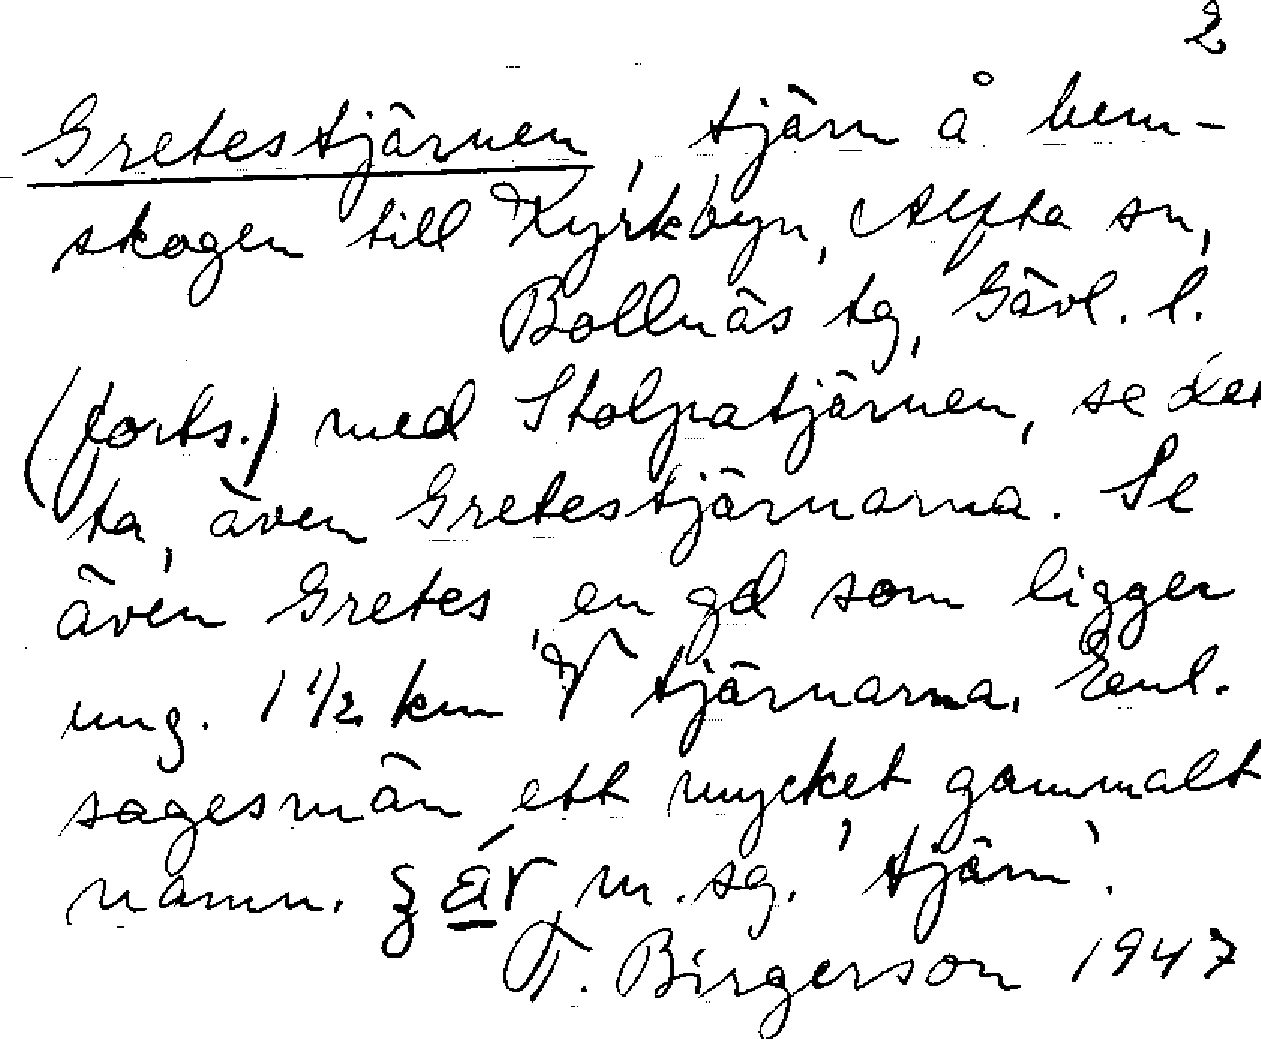 2
Gretestjärnen, tjärn å hem-
skogen till Kyrkbyn, Alfta sn,
Bollnäs tg, Gävl. l.
(forts.) med Stolpatjärnen, se det
ta, även Gretestjärnarna. Se
även Gretes, en gd som ligger
ung. 1 1/2 km V tjärnarna. Enl.
sagesmän ett mycket gammalt
namn. m. sg. 'tjärn'.
T. Birgerson 1947